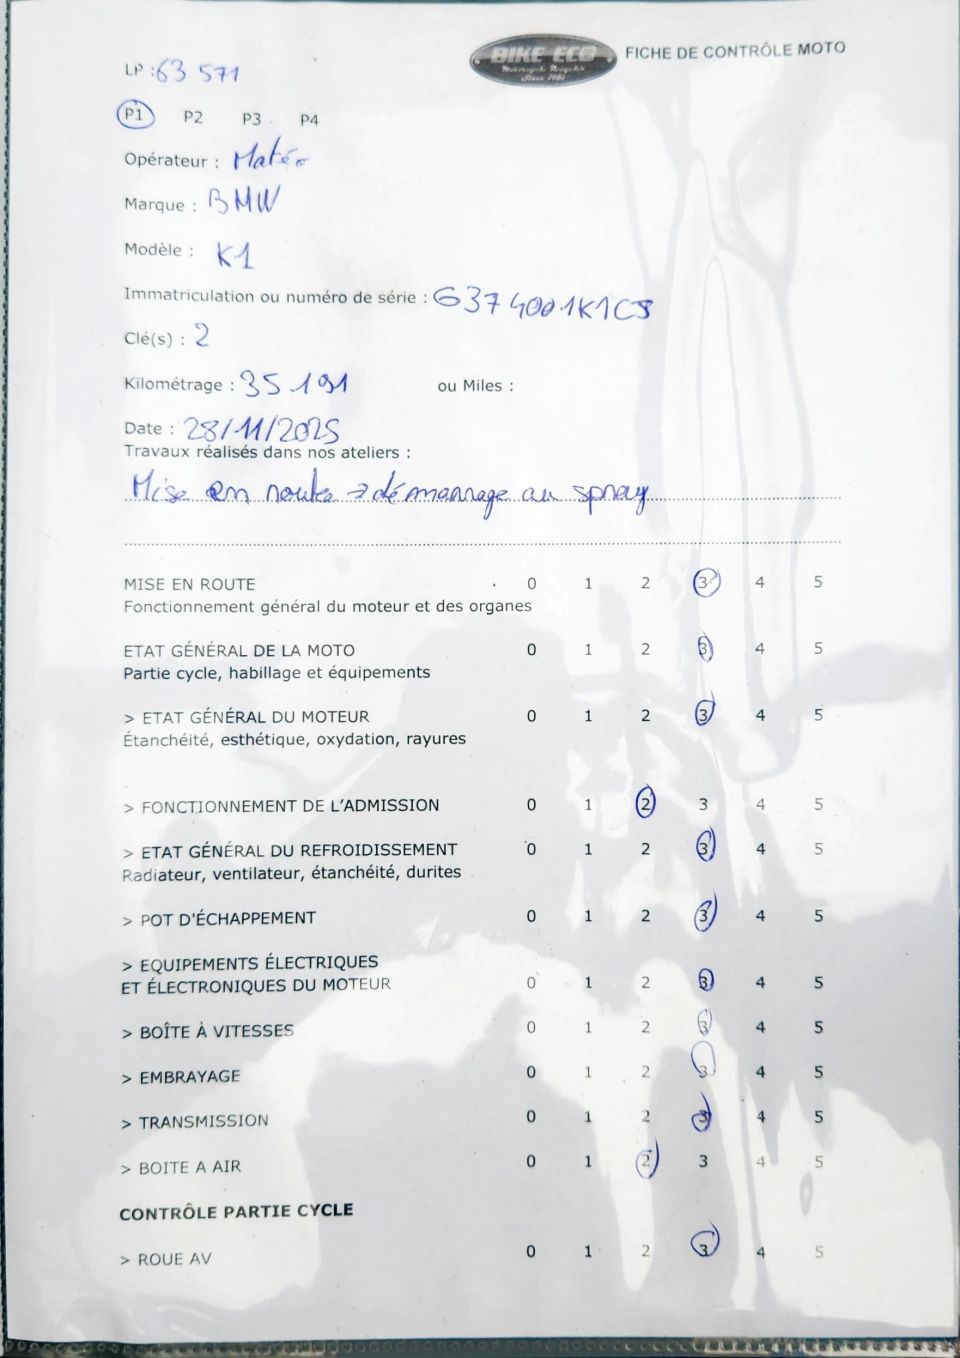 BIKE ECO
Motorcycle Recycler
Since 1981
FICHE DE CONTRÔLE MOTO
LP : 63 571
P1 P2 P3 P4
Opérateur : Matéo
Marque : BMW
Modèle : K1
Immatriculation ou numéro de série : 6374001K1CS
Clé(s) : 2
Kilométrage : 35 191 ou Miles :
Date : 28/11/2025
Travaux réalisés dans nos ateliers :
Mise en route → démarrage au spray
MISE EN ROUTE 0 1 2 3 4 5
Fonctionnement général du moteur et des organes
ETAT GÉNÉRAL DE LA MOTO 0 1 2 3 4 5
Partie cycle, habillage et équipements
> ETAT GÉNÉRAL DU MOTEUR 0 1 2 3 4 5
Étanchéité, esthétique, oxydation, rayures
> FONCTIONNEMENT DE L'ADMISSION 0 1 2 3 4 5
> ETAT GÉNÉRAL DU REFROIDISSEMENT 0 1 2 3 4 5
Radiateur, ventilateur, étanchéité, durites
> POT D'ÉCHAPPEMENT 0 1 2 3 4 5
> EQUIPEMENTS ÉLECTRIQUES
ET ÉLECTRONIQUES DU MOTEUR 0 1 2 3 4 5
> BOÎTE À VITESSES 0 1 2 3 4 5
> EMBRAYAGE 0 1 2 3 4 5
> TRANSMISSION 0 1 2 3 4 5
> BOITE A AIR 0 1 2 3 4 5
CONTRÔLE PARTIE CYCLE
> ROUE AV 0 1 2 3 4 5